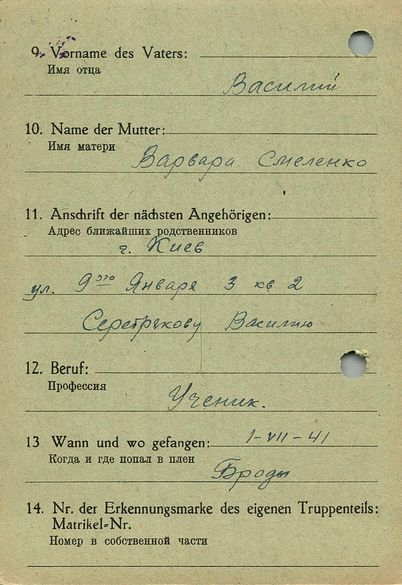 9. Vorname des Vaters:
Имя отца
Василий
10. Name der Mutter:
Имя матери
Варвара Смеленко
11. Anschrift der nächsten Angehörigen:
Адрес ближайших родственников
г. Киев
ул. 9го Января 3 кв 2
Василию
12. Beruf:
Профессия
Ученик.
13 Wann und wo gefangen: 1-VII-41
Когда и где попал в плен
Броды
14. Nr. der Erkennungsmarke des eigenen Truppenteils:
Matrikel=Nr.
Номер в собственной части